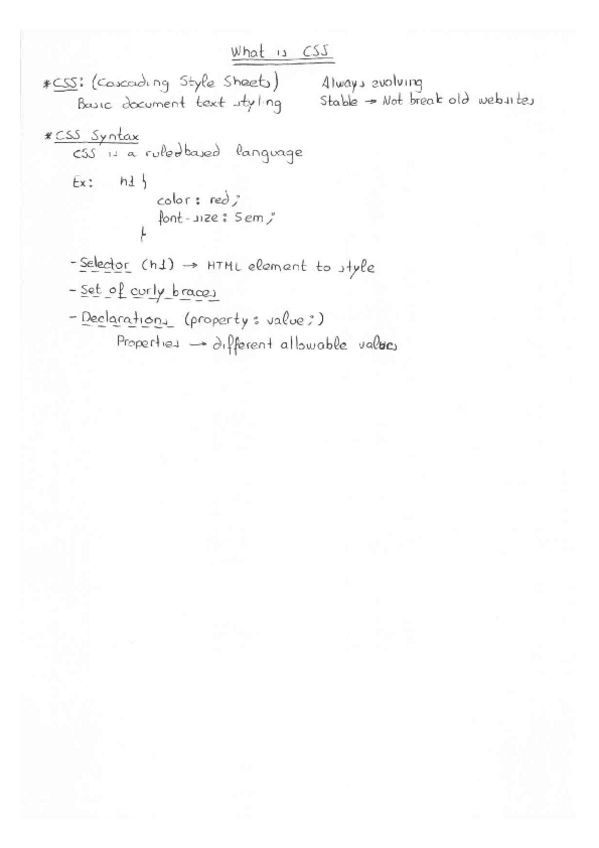 What is CSS
*CSS: (Cascading Style Sheets) Always evolving
Basic document text styling Stable → Not break old websites
*CSS Syntax
CSS is a ruledbased language
Ex: h1 {
color: red;
font-size: 5em;
}
-Selector (h1) → HTML element to style
-Set of curly braces
-Declarations (property: value;)
Properties → different allowable values